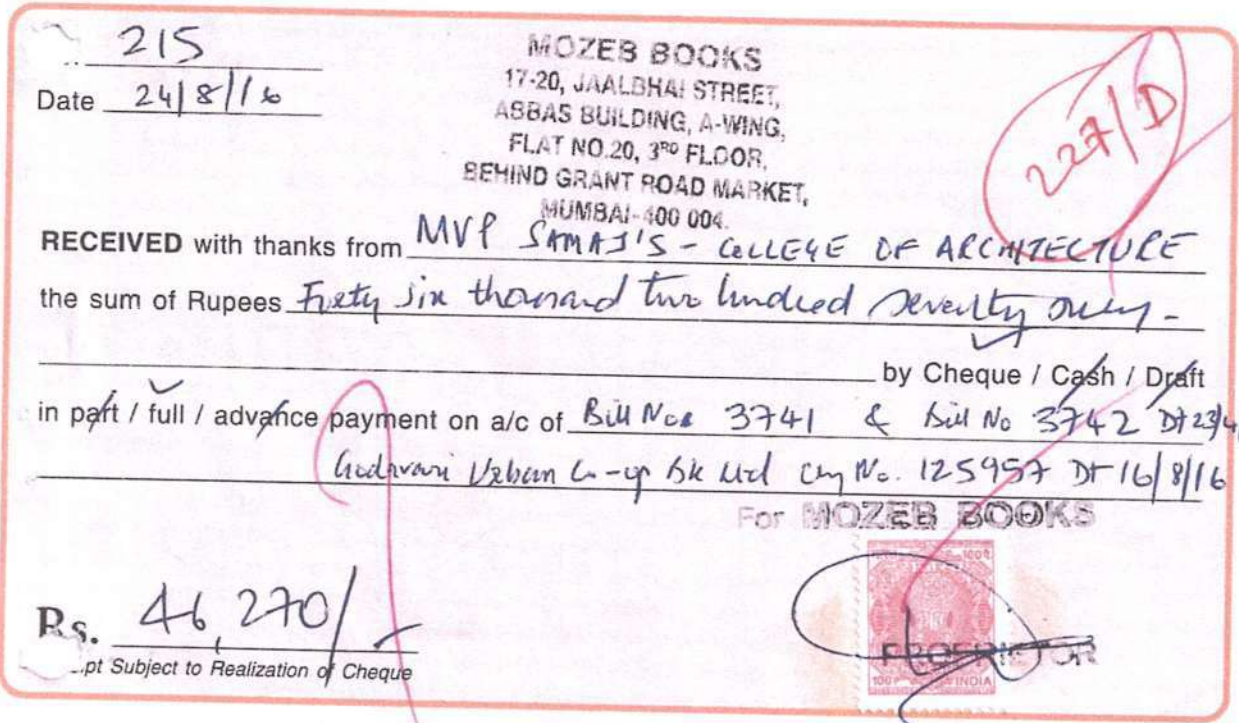 215
Date 24/8/16
MOZEB BOOKS
17-20, JAALBHAI STREET,
ABBAS BUILDING, A-WING,
FLAT NO.20, 3RD FLOOR,
BEHIND GRANT ROAD MARKET,
MUMBAI-400 004.
227/D
RECEIVED with thanks from MVP SAMAJ'S - COLLEGE OF ARCHITECTURE
the sum of Rupees Forty six thousand two hundred seventy only -
by Cheque / Cash / Draft
in part / full / advance payment on a/c of Bill Nos 3741 & Bill No 3742 Dt 23/4
Godavari Urban Co-op Bk Ltd Chq No. 125957 Dt 16/8/16
For MOZEB BOOKS
Rs. 46,270/-
PROPRIETOR
pt Subject to Realization of Cheque
100 P INDIA